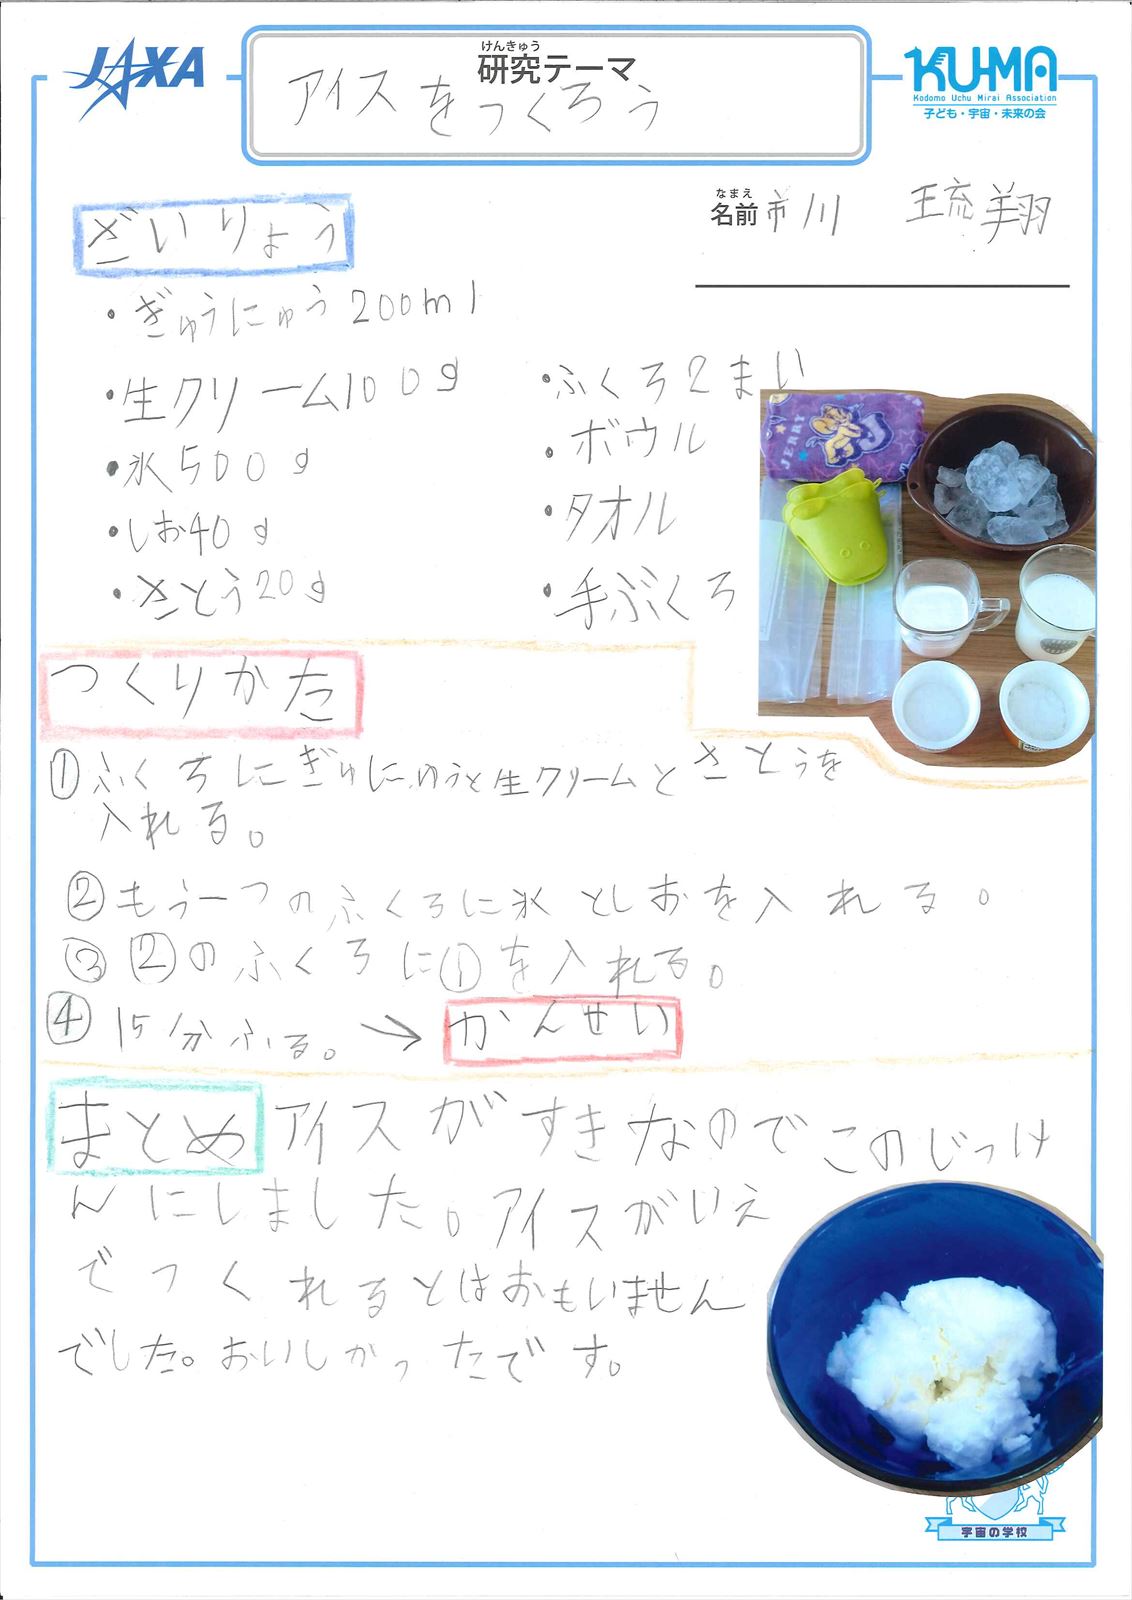 JAXA
けんきゅう
研究テーマ
アイスをつくろう
KU-MA
Kodomo Uchu Mirai Association
子ども・宇宙・未来の会
なまえ
名前 市川 琉翔
ざいりょう
・ぎゅうにゅう200ml
・生クリーム100g
・氷500g
・しお40g
・さとう20g
・ふくろ2まい
・ボウル
・タオル
・手ぶくろ
JERRY
つくりかた
①ふくろにぎゅにゅうと生クリームとさとうを
入れる。
②もう一つのふくろに氷としおを入れる。
③②のふくろに①を入れる。
④15分ふる。→かんせい
まとめ アイスがすきなのでこのじっけ
んにしました。アイスがいえ
でつくれるとはおもいません
でした。おいしかったです。
宇宙の学校